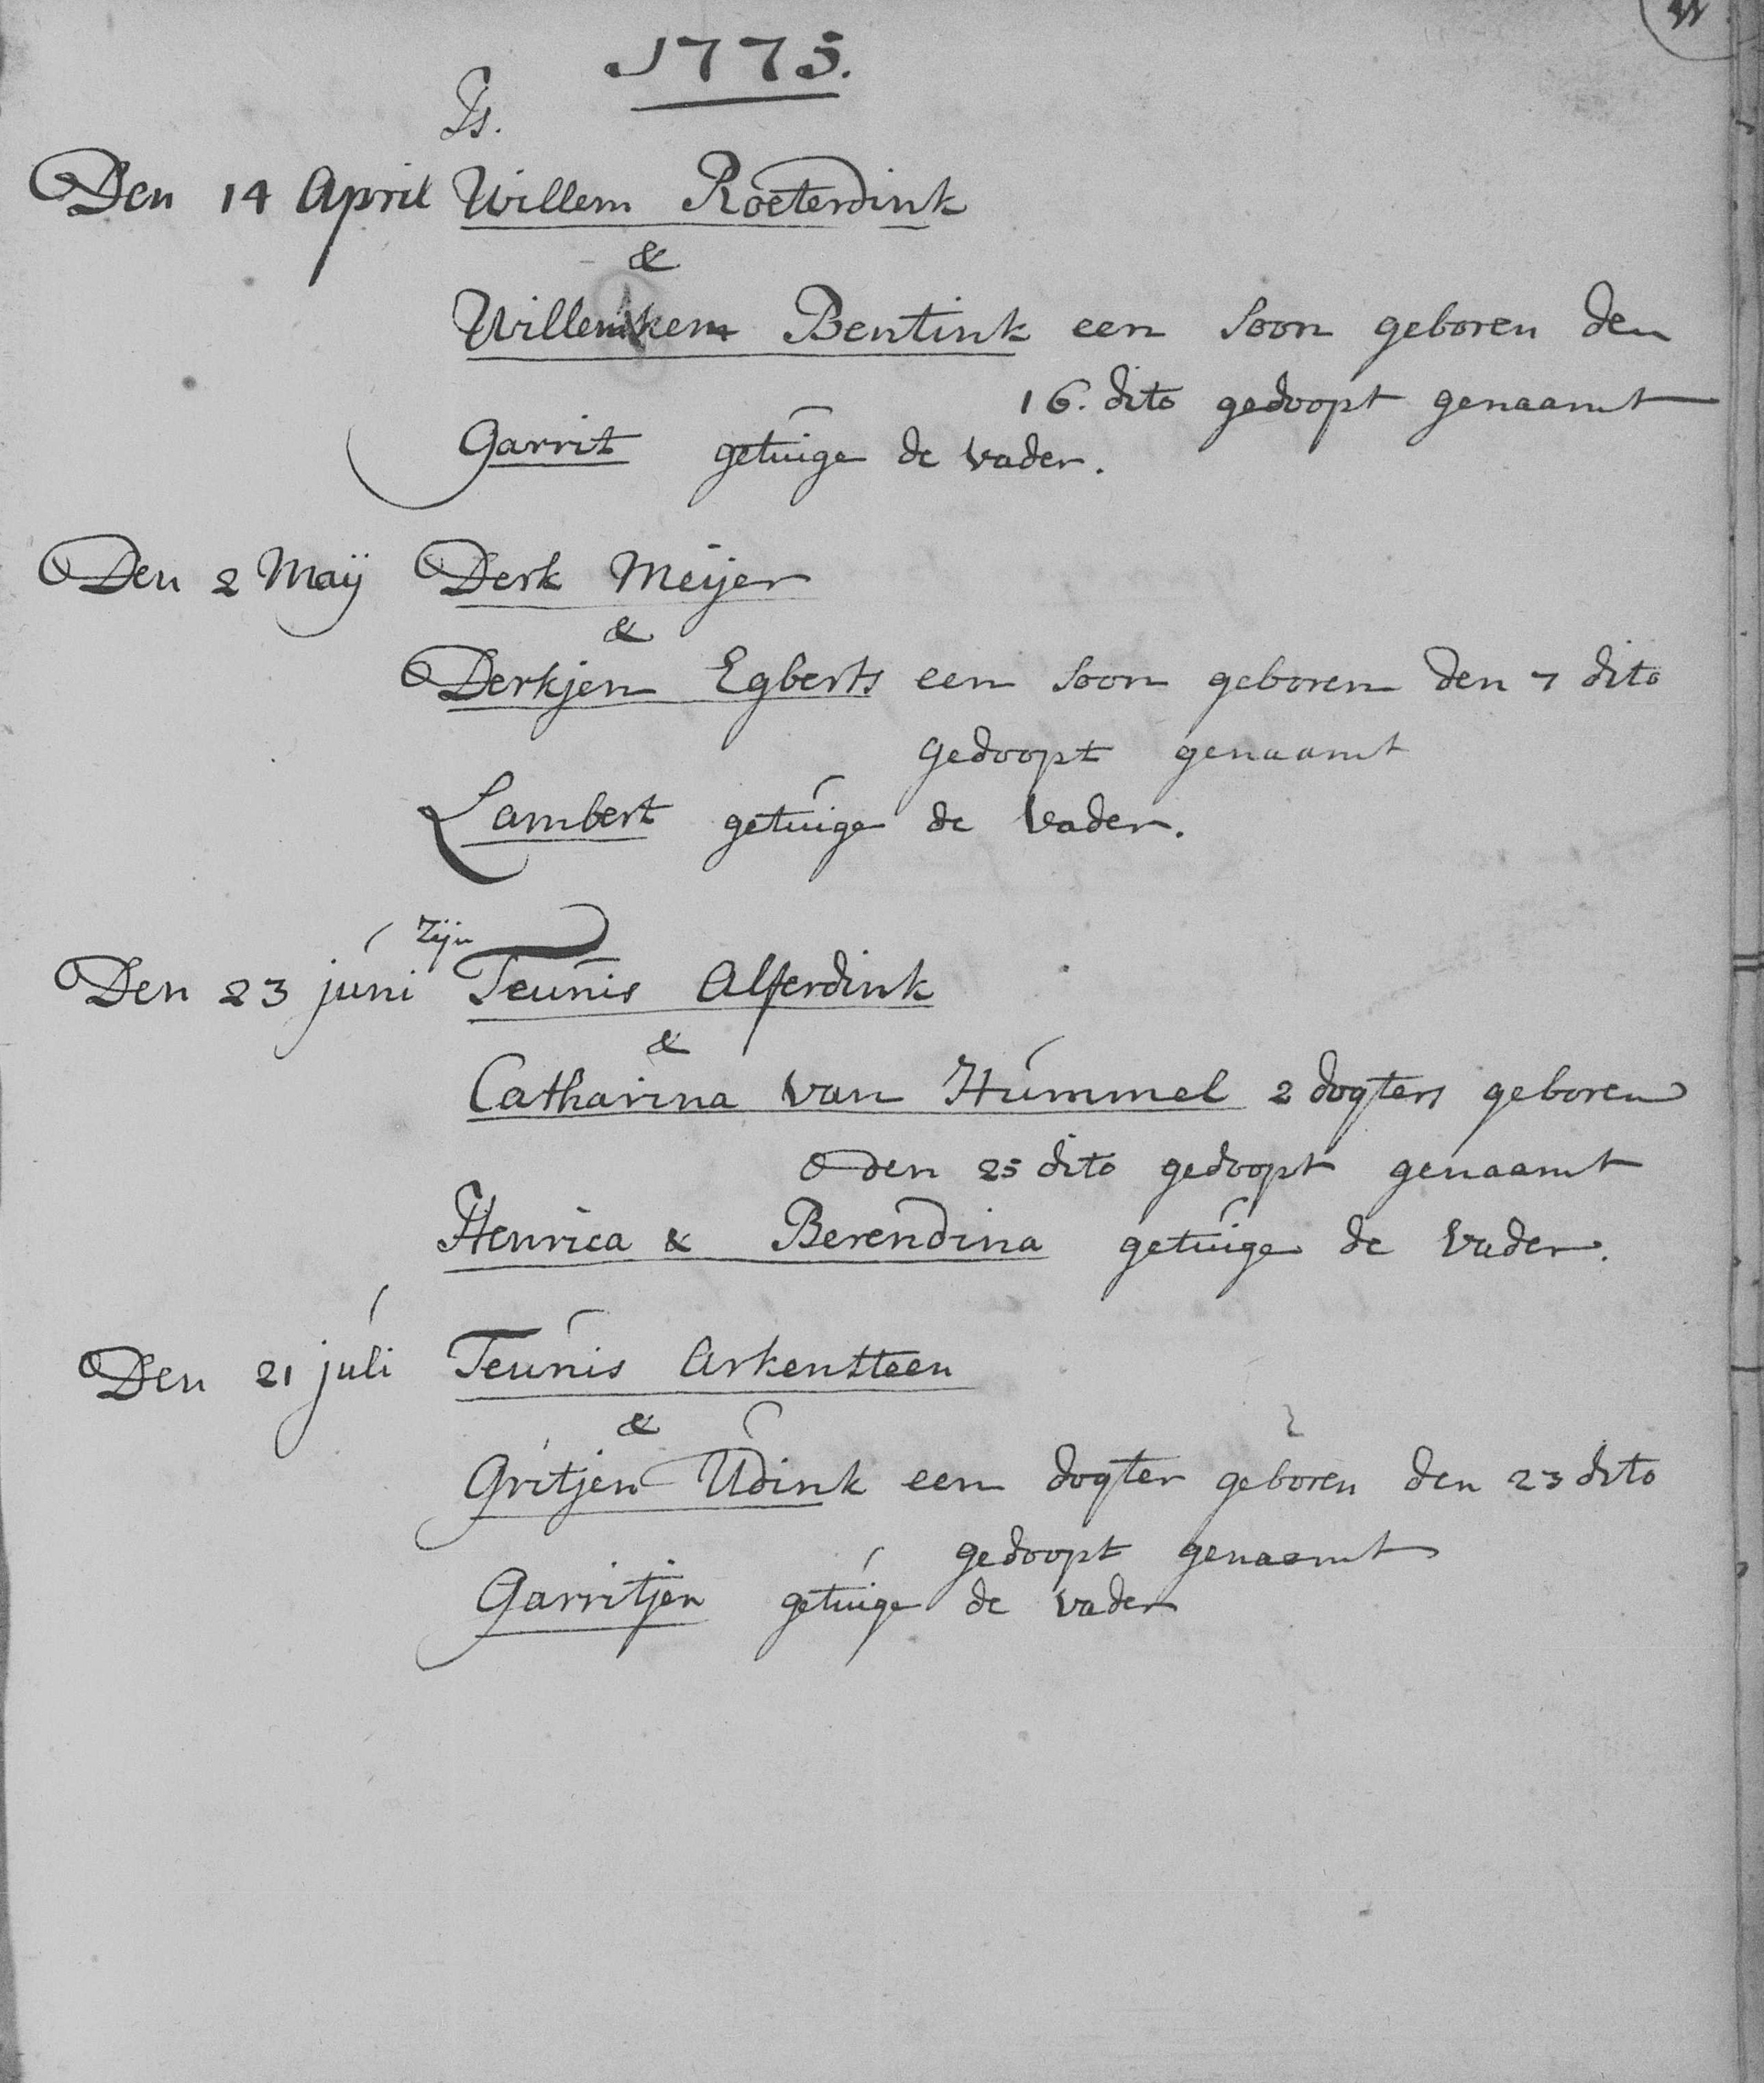 1775.
Is.
Den 14 April Willem Roeterdink
&
Willemken Bentink een soon geboren den
16. dito gedoopt genaamt
Garrit getuige de vader.
Den 2 Maÿ Derk Meijer
&
Derkjen Egberts een soon geboren den 7 dito
gedoopt genaamt
Lambert getuige de vader.
Zijn
Den 23 juni Teunis Alferdink
&
Catharina van Hummel 2 dogters geboren
den 25 dito gedoopt genaamt
Henrica & Berendina getuige de vader.
Den 21 juli Teunis Arkensteen
&
Gritjen Udink een dogter geboren den 23 dito
gedoopt genaamt
Garritjen getuige de vader